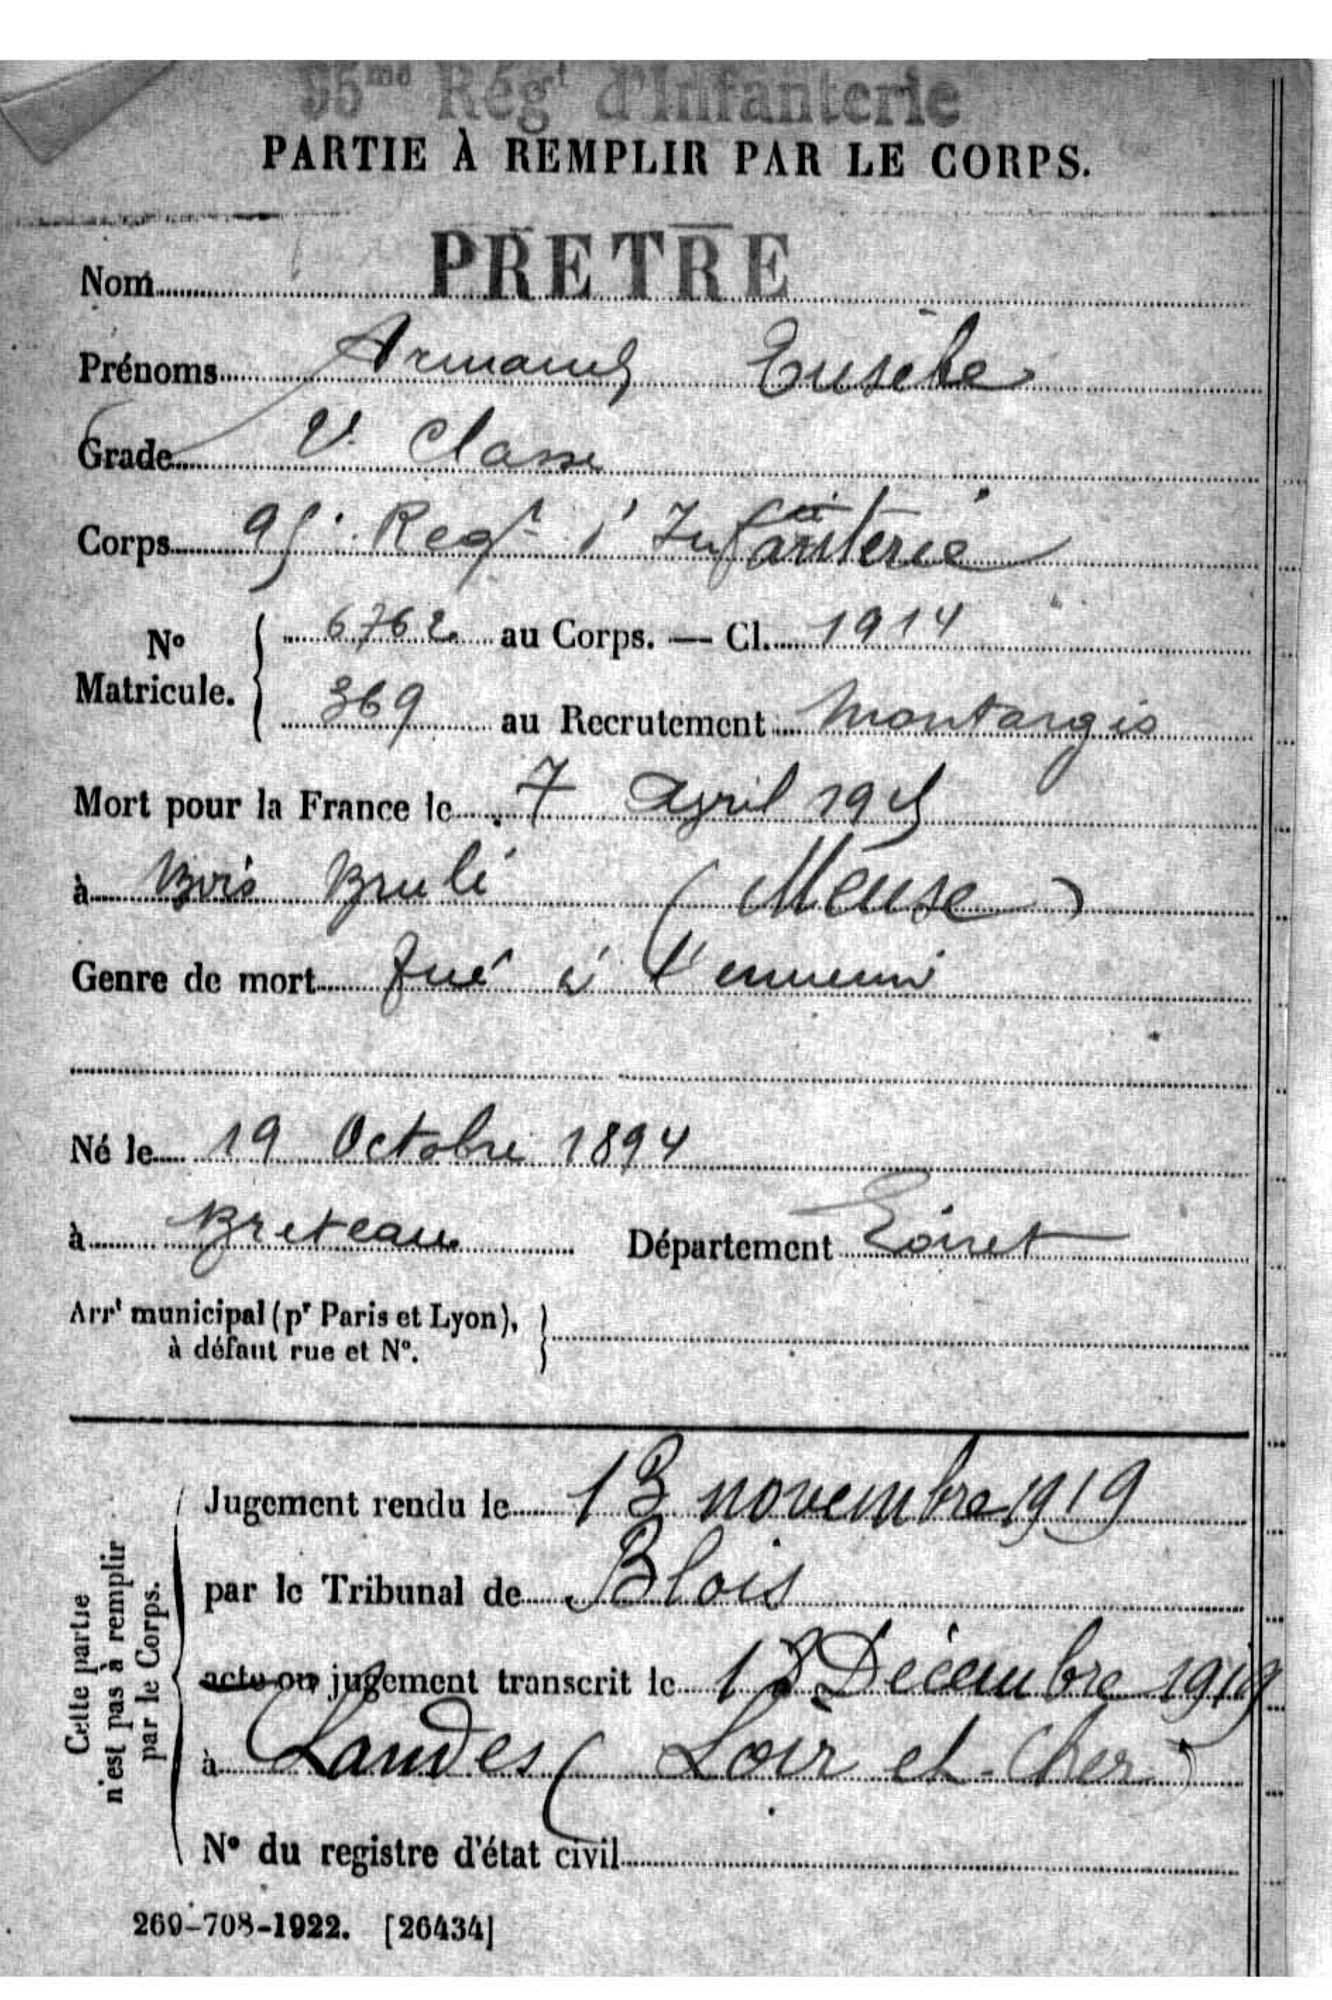 95me Régt d'Infanterie
PARTIE À REMPLIR PAR LE CORPS.
Nom PRETRE
Prénoms Armand Eusèbe
Grade 2e Classe
Corps 95e Regt d'Infanterie
No Matricule. 6762 au Corps. — Cl. 1914
369 au Recrutement Montargis
Mort pour la France le 7 Avril 1915
à Bois Brulé (Meuse)
Genre de mort Tué à l'ennemi
Né le 19 Octobre 1894
à Breteau Département Loiret
Arrt municipal (pr Paris et Lyon),
à défaut rue et No.
Cette partie
n'est pas à remplir
par le Corps.
Jugement rendu le 13 novembre 1919
par le Tribunal de Blois
acte ou jugement transcrit le Décembre 1919
à Landes (Loir et-Cher)
No du registre d'état civil
269-708-1922. [26434]